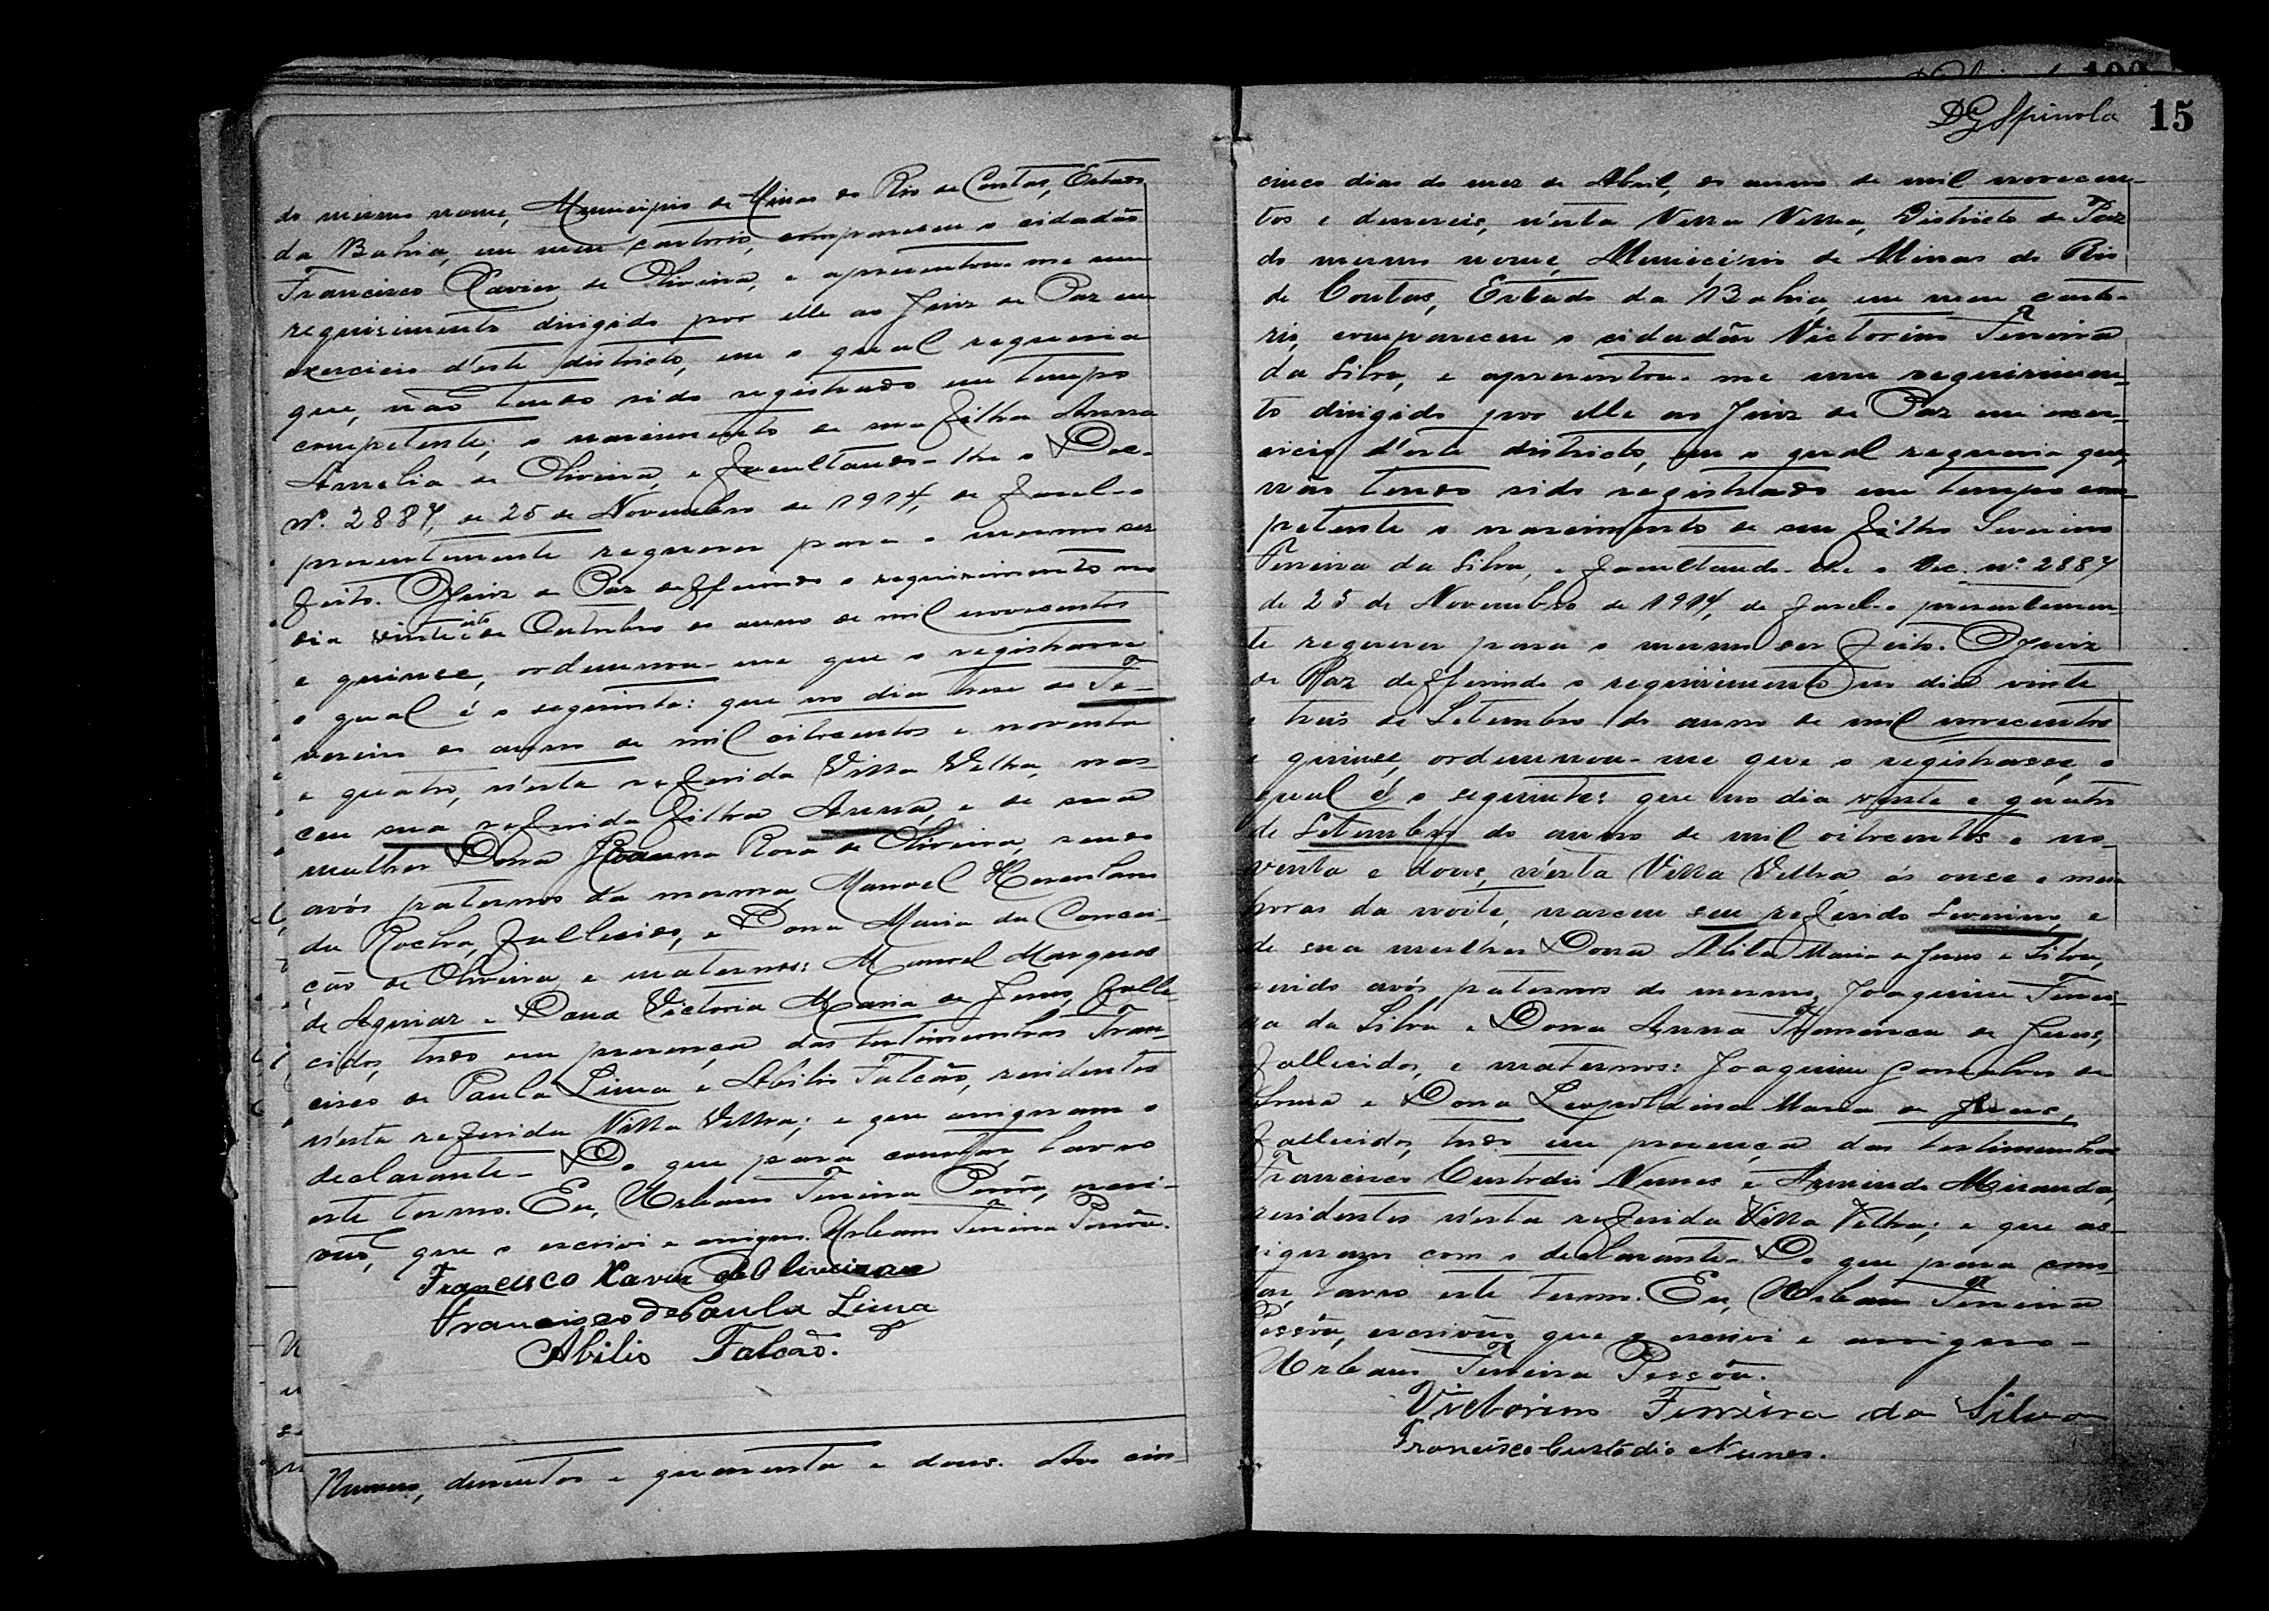 do mesmo nome, Municipio de Minas do Rio de Contas, Estado
da Bahia, em meu cartorio, compareceu o cidadão
Francisco Xavier de Oliveira, e apresentou-me um
requerimento dirigido por elle ao Juiz de Paz em
exercicio d'este districto, em o qual requeria
que, não tendo sido registrado em tempo
competente, o nascimento de sua filha Anna
Amelia de Oliveira, e facultando-lhe o Dec.
nº. 2887, de 25 de Novembro de 1914, de fasel-o
presentemente requerer para o mesmo ser
feito. O Juiz de Paz defferindo o requerimento no
dia vinte e oito de Outubro do anno de mil novecentos
e quinse, ordennou-me que o registrasse
o qual é o seguinte: que no dia trese de Fe-
vereiro do anno de mil oitocentos e noventa
e quatro, n'esta referida Villa Velha, nas-
ceu sua referida filha Anna, e de sua
mulher Dona Joanna Rosa de Oliveira, sendo
avós paternos da mesma, Manoel
da Rocha, fallecido, e Dona Maria da Concei-
ção de Oliveira e maternos: Manoel Marques
de Aguiar e Dona Victoria Maria de Jesus, falle-
cidos, tudo em presença das testimunhas Fran-
cisco de Paula Lima e Abilio Falcão, residentes
n'esta referida Villa Velha; e que assignam o
declarante. Do que para constar, lavro
este termo. Eu, Urbano Ferreira Pessôa, escri-
vão, que o escrivi e assigno. Urbano Ferreira Pessôa.
Francisco Xavier de Oliveira
Francisco de Paula Lima
Abilio Falcão.
Numero, dusentos e quarenta e dous. Aos cin-
DG Spinola 15
cinco dias do mez de Abril, do anno de mil novecen-
tos e deseseis, n'esta Villa Velha, Districto de Paz
do mesmo nome, Municipio de Minas do Rio
de Contas, Estado da Bahia, em meu carto-
rio, compareceu o cidadão Victorino Ferreira
da Silva, e apresentou-me um requerimen-
to dirigido por elle ao Juiz de Paz em exer-
cicio d'este districto, em o qual requeria que,
não tendo sido registrado em tempo com-
petente o nascimento de seu filho Severino
Ferreira da Silva, e facultando-lhe o Dec. nº. 2887
de 25 de Novembro de 1914, de fasel-o presentemen-
te requerer para o mesmo ser feito. O Juiz
de Paz defferindo o requerimento no dia vinte
e treis de Setembro do anno de mil novecentos
e quinse, ordennou-me que o registrasse, o
qual é o seguinte: que no dia vinte e quatro
de Setembro do anno de mil oitocentos e no-
venta e dous, n'esta Villa Velha ás onse e meia
horas da noite, nasceu seu referido Severino, e
de sua mulher Dona Maria de Jesus e Silva,
sendo avós paternos do mesmo, Joaquim Ferrei-
ra da Silva e Dona Anna Francisca de Jesus,
fallecidos, e maternos: Joaquim Gonçalves de
e Dona Leopoldina Maria de Jesus,
fallecidos, tudo em presença das testimunhas
Francisco Custodio Nunes e Arminda Miranda,
residentes n'esta referida Villa Velha; e que as-
signam com o declarante. Do que para cons-
tar, lavro este termo. Eu, Urbano Ferreira
Pessôa, escrivão, que o escrivi e assigno-
Urbano Ferreira Pessôa.
Victorino Ferreira da Silva
Francisco Custodio Nunes.